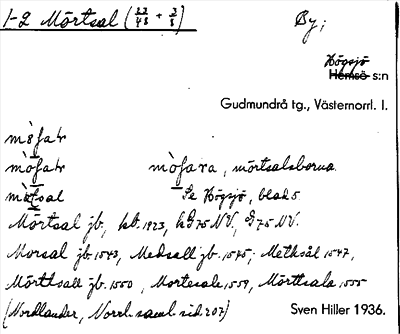 1-2 Mörtsal (23/48 + 3/8) By;
Högsjö
Hemsö s:n
Gudmundrå tg., Västernorrl. l.
mòfar mòfara, mörtsalsborna.
Se Högsjö, blad 5.
Mörtsal jb., kb. 1823, hG 75 NV, G 75 NV.
Morsal jb. 1543, Medsall jb. 1575; Metksål 1547,
Mörttsall jb. 1550, Mortesale 1559, Mörttsala 1555
(Nordlander, Norrl. saml. sid. 207) Sven Hiller 1936.